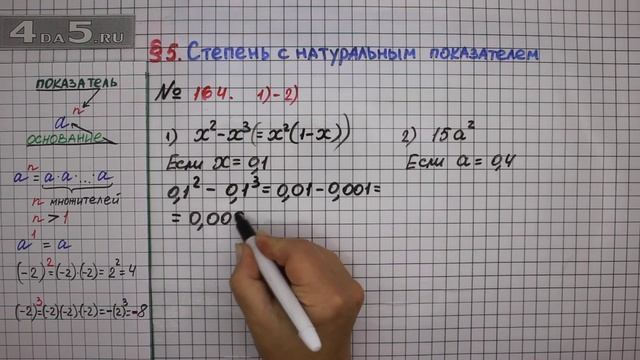 4DA5.RU
§5. Степень с натуральным показателем
№ 164. 1)-2)
показатель
aⁿ
основание
aⁿ = a·a·...·a
n множителей
n > 1
a¹ = a
(-2)² = (-2)·(-2) = 2² = 4
(-2)³ = (-2)(-2)·(-2) = -(2)³ = -8
1) x² - x³ (= x²(1-x))
Если x = 0,1
0,1² - 0,1³ = 0,01 - 0,001 =
= 0,00
2) 15a²
Если a = 0,4